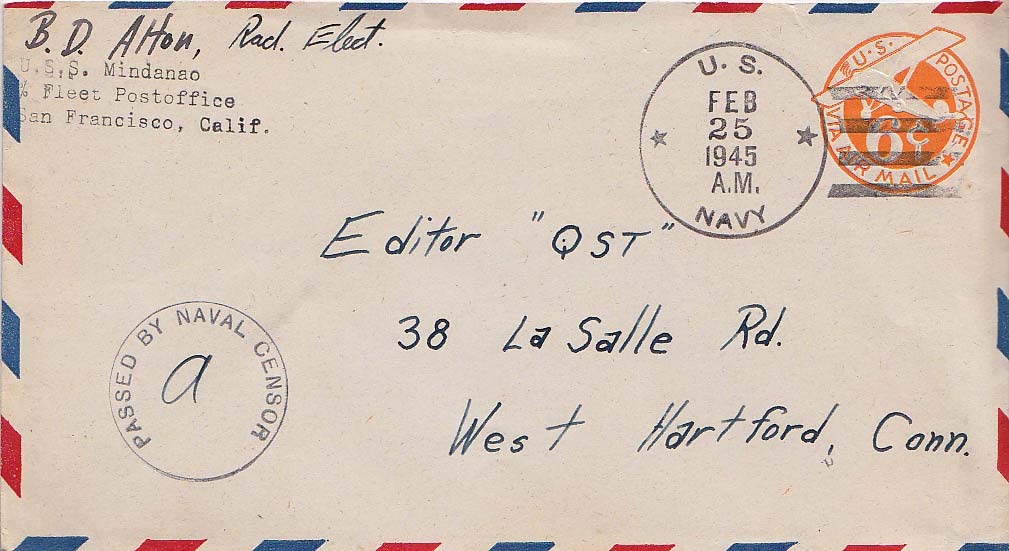 B. D. Alton, Rad. Elect.
U.S.S. Mindanao
% Fleet Postoffice
San Francisco, Calif.
U. S.
FEB
25
1945
A.M.
NAVY
U.S. POSTAGE
6¢
VIA AIR MAIL
Editor "QST"
38 La Salle Rd.
West Hartford, Conn.
PASSED BY NAVAL CENSOR
a